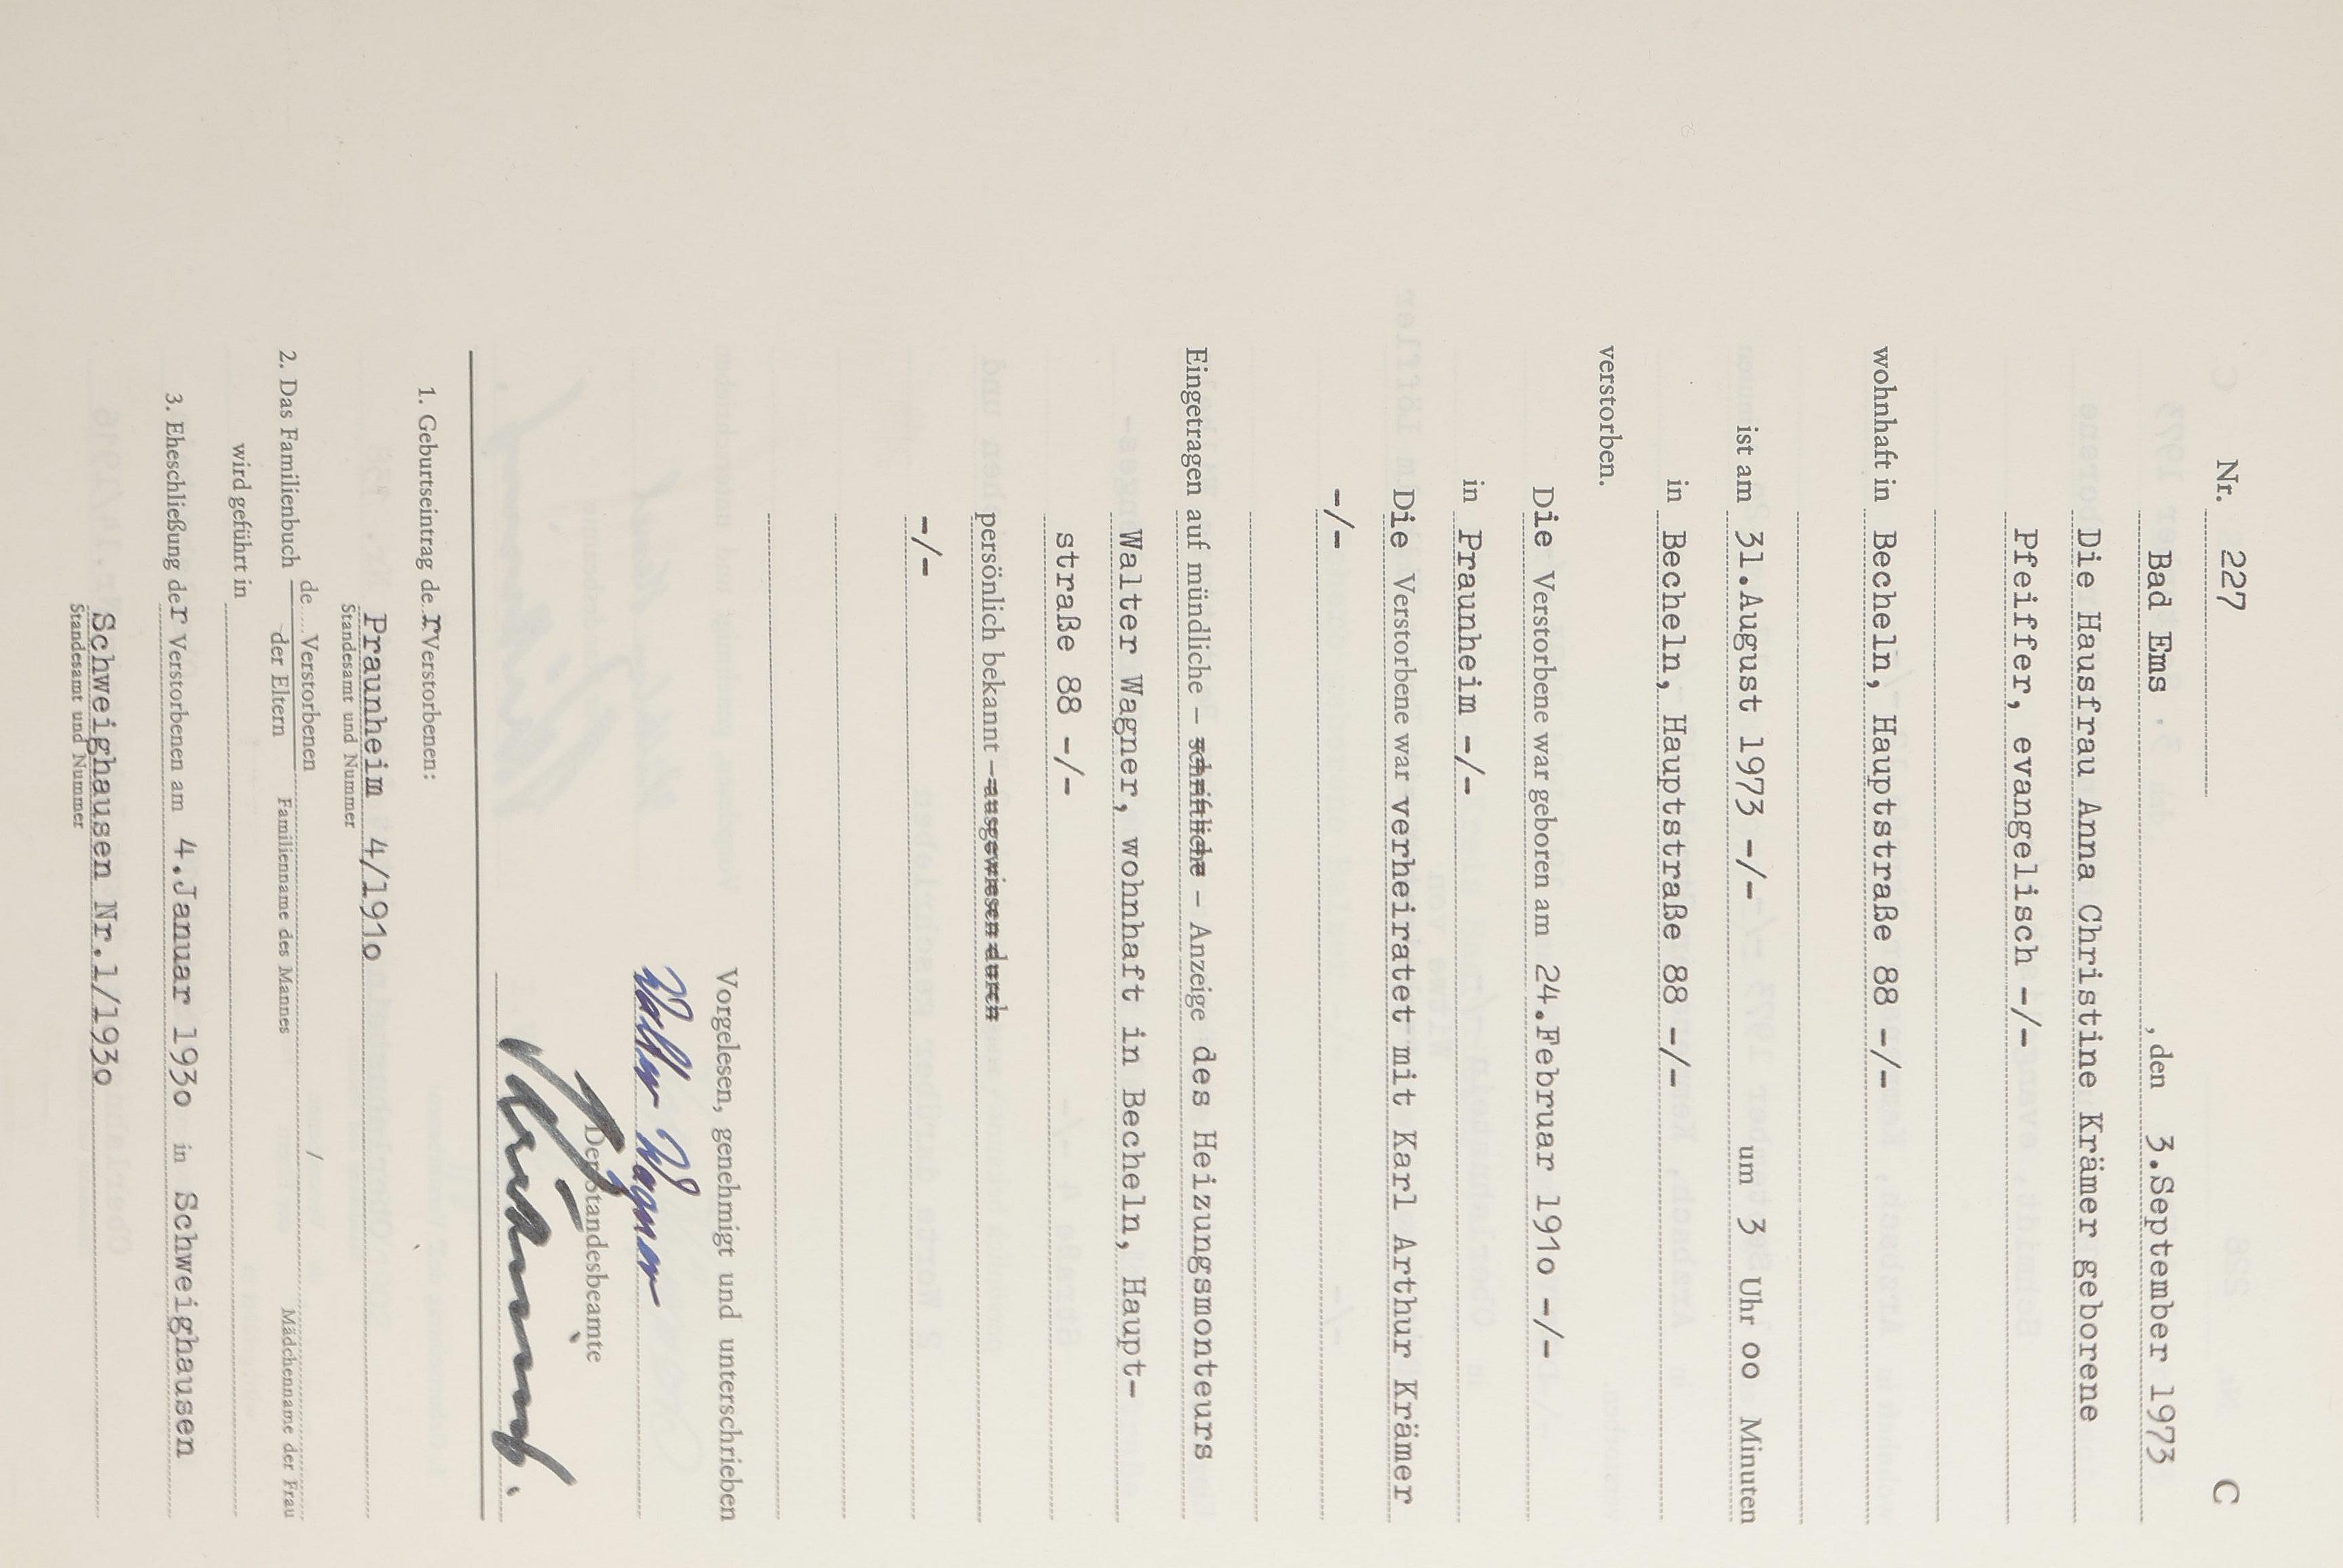 Nr. 227 C
Bad Ems, den 3.September 1973
Die Hausfrau Anna Christine Krämer geborene
Pfeiffer, evangelisch -/-
wohnhaft in Becheln, Hauptstraße 88 -/-
ist am 31.August 1973 -/- um 3 Uhr oo Minuten
in Becheln, Hauptstraße 88 -/-
verstorben.
Die Verstorbene war geboren am 24.Februar 191o -/-
in Praunheim -/-
Die Verstorbene war verheiratet mit Karl Arthur Krämer
-/-
Eingetragen auf mündliche – schriftliche – Anzeige des Heizungsmonteurs
Walter Wagner, wohnhaft in Becheln, Haupt-
straße 88 -/-
persönlich bekannt – ausgewiesen durch
-/-
Vorgelesen, genehmigt und unterschrieben
Walter Wagner
Der Standesbeamte
1. Geburtseintrag der Verstorbenen:
Praunheim 4/191o
Standesamt und Nummer
de Verstorbenen
2. Das Familienbuch der Eltern Familienname des Mannes / Mädchenname der Frau
wird geführt in
3. Eheschließung der Verstorbenen am 4.Januar 193o in Schweighausen
Schweighausen Nr.1/193o
Standesamt und Nummer